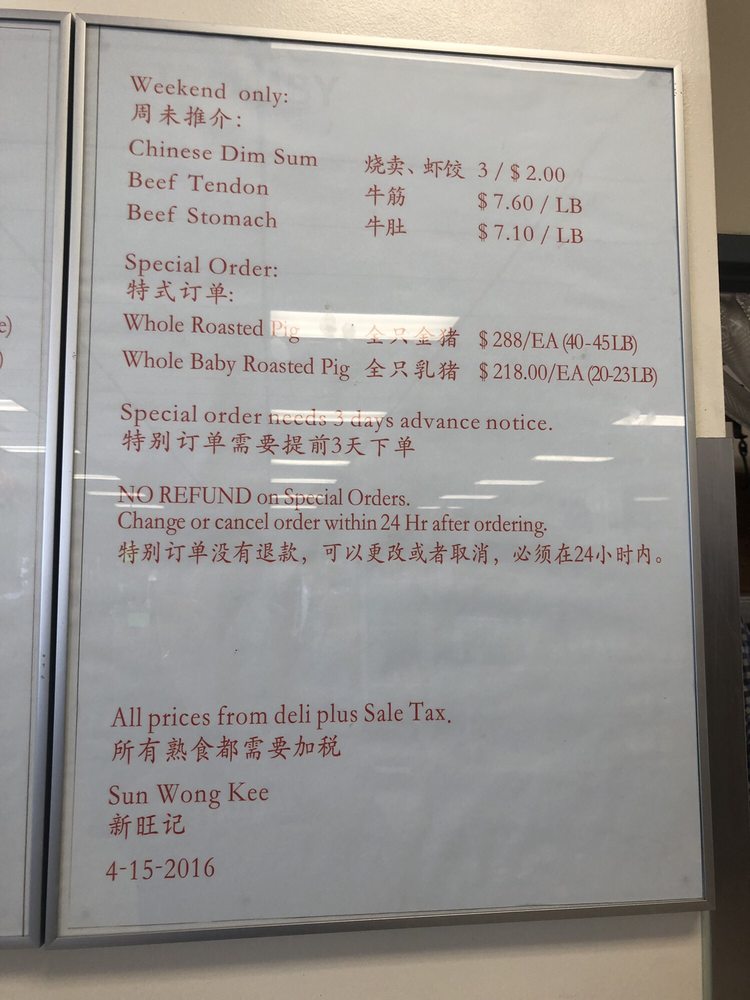 Weekend only:
周未推介:
Chinese Dim Sum 烧卖、虾饺 3 / $ 2.00
Beef Tendon 牛筋 $ 7.60 / LB
Beef Stomach 牛肚 $ 7.10 / LB
Special Order:
特式订单:
Whole Roasted Pig 全只金猪 $ 288/EA (40-45LB)
Whole Baby Roasted Pig 全只乳猪 $ 218.00/EA (20-23LB)
Special order needs 3 days advance notice.
特别订单需要提前3天下单
NO REFUND on Special Orders.
Change or cancel order within 24 Hr after ordering.
特别订单没有退款，可以更改或者取消，必须在24小时内。
All prices from deli plus Sale Tax.
所有熟食都需要加税
Sun Wong Kee
新旺记
4-15-2016